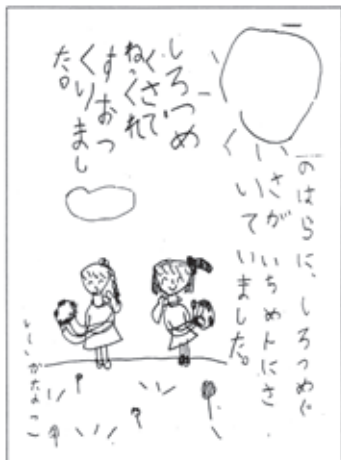 のはらに、しろつめぐ
さがいちめんにさ
いていました。
しろつめ
くさで
ねっくれ
すおつ
くりまし
た。